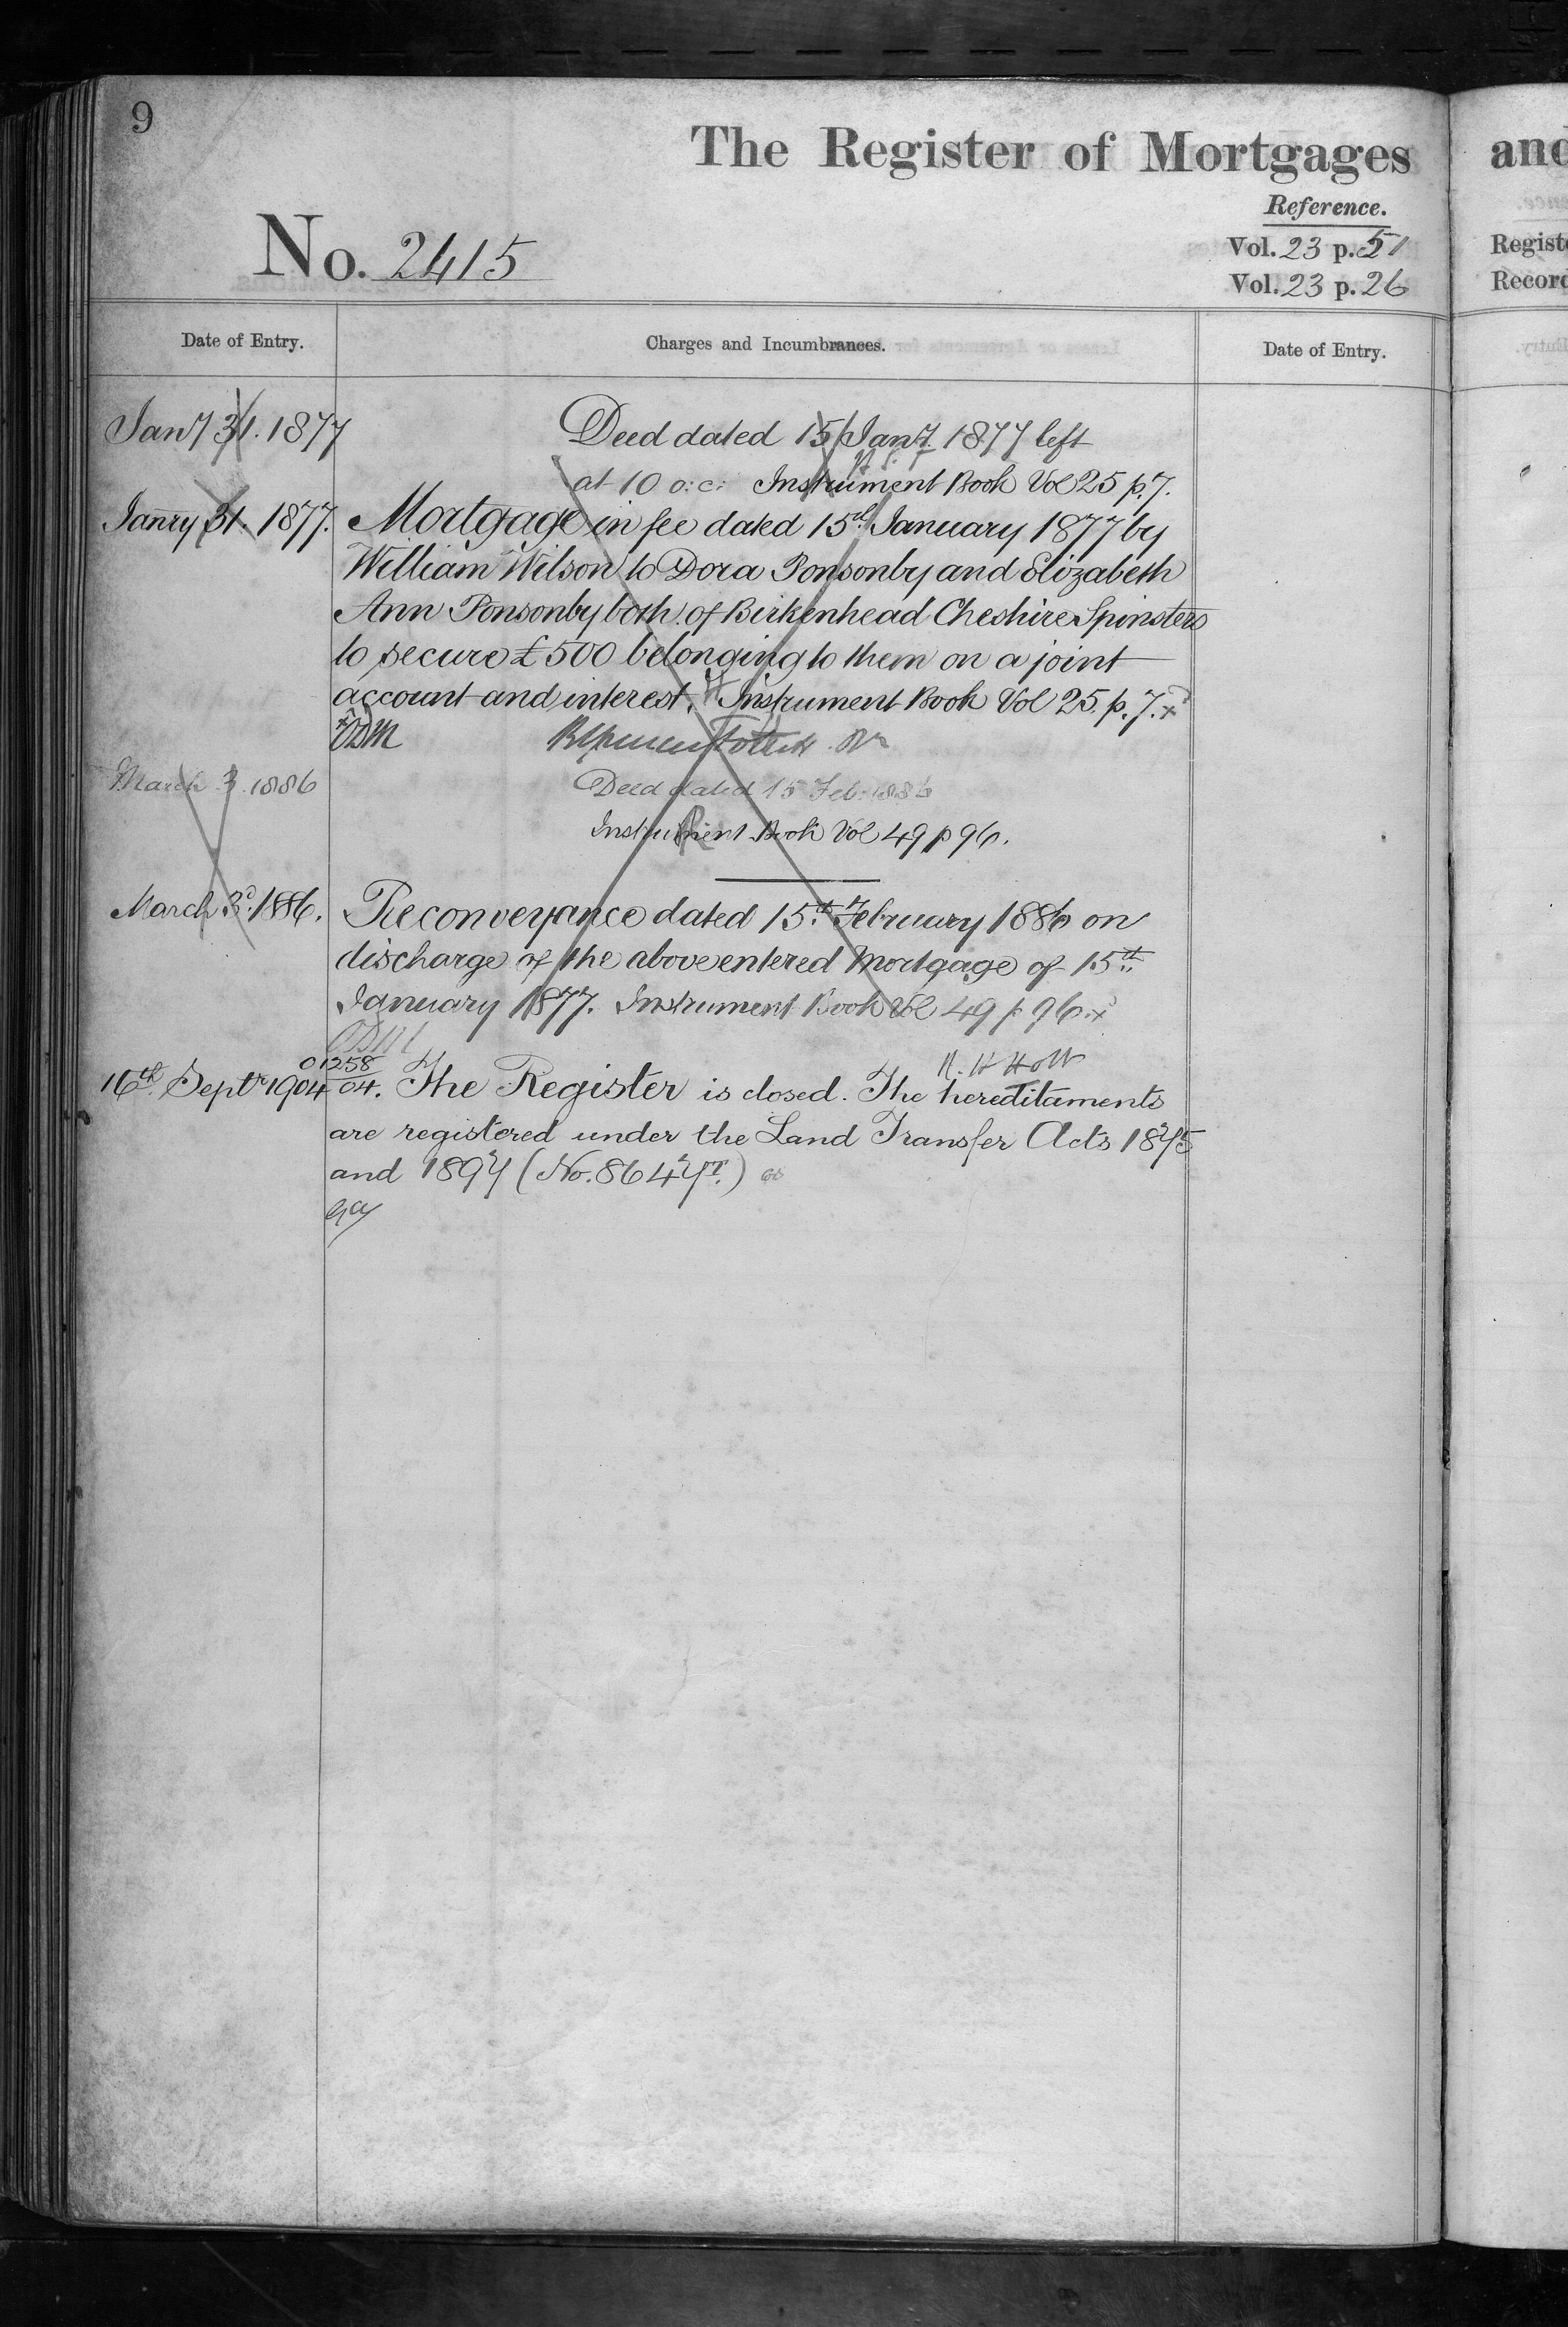 9
The Register of Mortgages
Reference.
No. 2415
Vol. 23 p. 51
Vol. 23 p. 26
Date of Entry.
Charges and Incumbrances.
Date of Entry.
Jany 31. 1877
Deed dated 15 Jany 1877 left
at 10 o:c: Instrument Book Vol 25 p. 7.
Janry 31. 1877.
Mortgage in fee dated 15th January 1877 by
William Wilson to Dora Ponsonby and Elizabeth
Ann Ponsonby both of Birkenhead Cheshire Spinsters
to secure £500 belonging to them on a joint
account and interest. Instrument Book Vol 25. p. 7. x
March 3. 1886
Deed dated 15 Feb. 1886
Instrument Book Vol 49 p 96.
March 3d. 1886.
Reconveyance dated 15th February 1886 on
discharge of the above entered Mortgage of 15th
January 1877. Instrument Book Vol 49 p 96. x
16th Septr 1904
01258
04.
The Register is closed. The hereditaments
are registered under the Land Transfer Acts 1875
and 1897 (No. 86477.)
and
Registe
Record